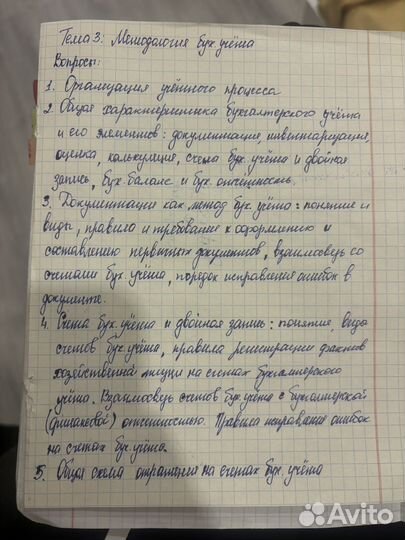 Тема 3: Методология бух. учёта
Вопросы:
1. Организация учётного процесса
2. Общая характеристика бухгалтерского учёта
и его элементов: документация, инвентаризация,
оценка, калькуляция, счета бух. учёта и двойная
запись, бух. баланс и бух. отчётность.
3. Документация как метод бух. учёта: понятие и
виды, правила и требования к оформлению и
составлению первичных документов, взаимосвязь со
счетами бух. учёта, порядок исправления ошибок в
документе.
4. Счета бух. учёта и двойная запись: понятие, виды
счетов бух. учёта, правила регистрации фактов
хозяйственной жизни на счетах бухгалтерского
учёта. Взаимосвязь счетов бух. учёта с бухгалтерской
(финансовой) отчётностью. Правила исправления ошибок
на счетах бух. учёта.
5. Общая схема отражения на счетах бух. учёта
Avito